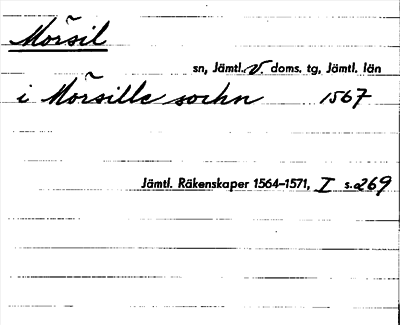 Mörsil
sn, Jämtl. v. doms. tg, Jämtl. län
i Mörsille sochn 1567
Jämtl. Räkenskaper 1564–1571, I s. 269